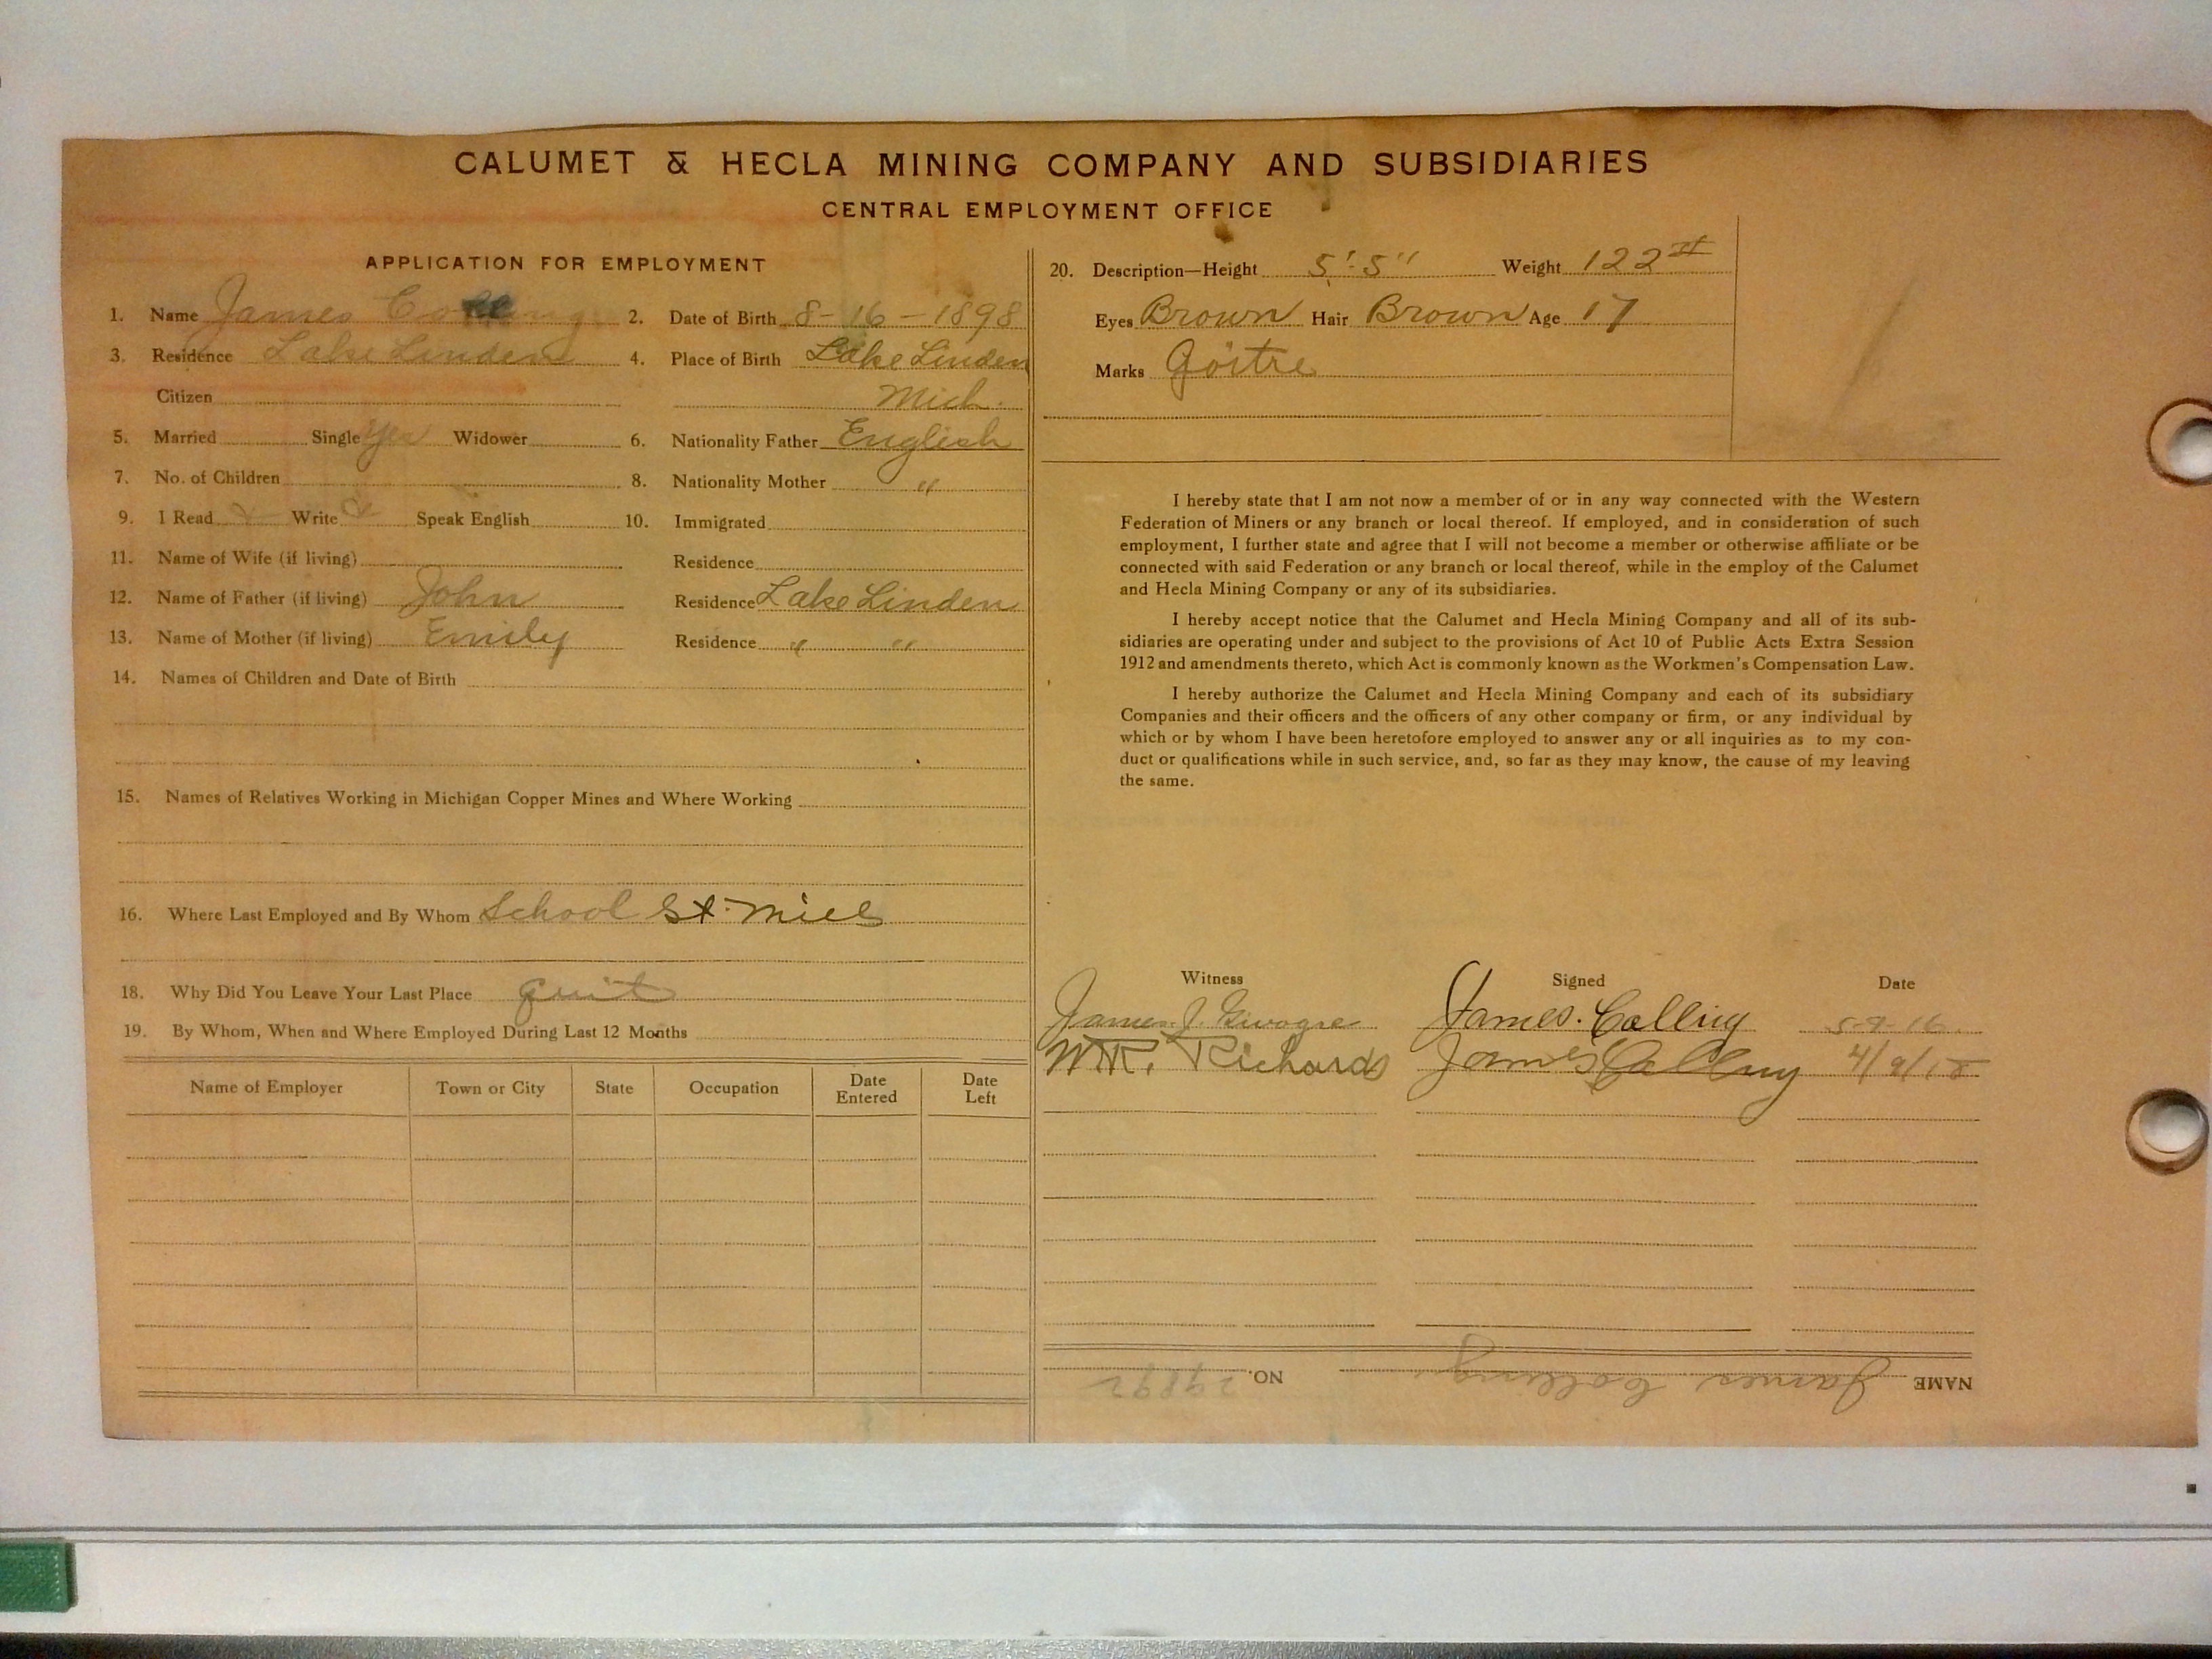 CALUMET & HECLA MINING COMPANY AND SUBSIDIARIES
CENTRAL EMPLOYMENT OFFICE
APPLICATION FOR EMPLOYMENT
1. Name James Colling 2. Date of Birth 8-16-1898
3. Residence Lake Linden 4. Place of Birth Lake Linden
Citizen Mich.
5. Married Single Yes Widower 6. Nationality Father English
7. No. of Children 8. Nationality Mother "
9. I Read Write Speak English 10. Immigrated
11. Name of Wife (if living) Residence
12. Name of Father (if living) John Residence Lake Linden
13. Name of Mother (if living) Emily Residence " "
14. Names of Children and Date of Birth
15. Names of Relatives Working in Michigan Copper Mines and Where Working
16. Where Last Employed and By Whom School St. Mill
18. Why Did You Leave Your Last Place quit
19. By Whom, When and Where Employed During Last 12 Months
Name of Employer Town or City State Occupation Date Entered Date Left
20. Description—Height 5'.5" Weight 122
Eyes Brown Hair Brown Age 17
Marks Goitre
I hereby state that I am not now a member of or in any way connected with the Western
Federation of Miners or any branch or local thereof. If employed, and in consideration of such
employment, I further state and agree that I will not become a member or otherwise affiliate or be
connected with said Federation or any branch or local thereof, while in the employ of the Calumet
and Hecla Mining Company or any of its subsidiaries.
I hereby accept notice that the Calumet and Hecla Mining Company and all of its sub-
sidiaries are operating under and subject to the provisions of Act 10 of Public Acts Extra Session
1912 and amendments thereto, which Act is commonly known as the Workmen's Compensation Law.
I hereby authorize the Calumet and Hecla Mining Company and each of its subsidiary
Companies and their officers and the officers of any other company or firm, or any individual by
which or by whom I have been heretofore employed to answer any or all inquiries as to my con-
duct or qualifications while in such service, and, so far as they may know, the cause of my leaving
the same.
Witness Signed Date
James J. James. Colling 5-9-16
W.R. Richards James Colling 4/9/18
NAME James Colling NO. 29892